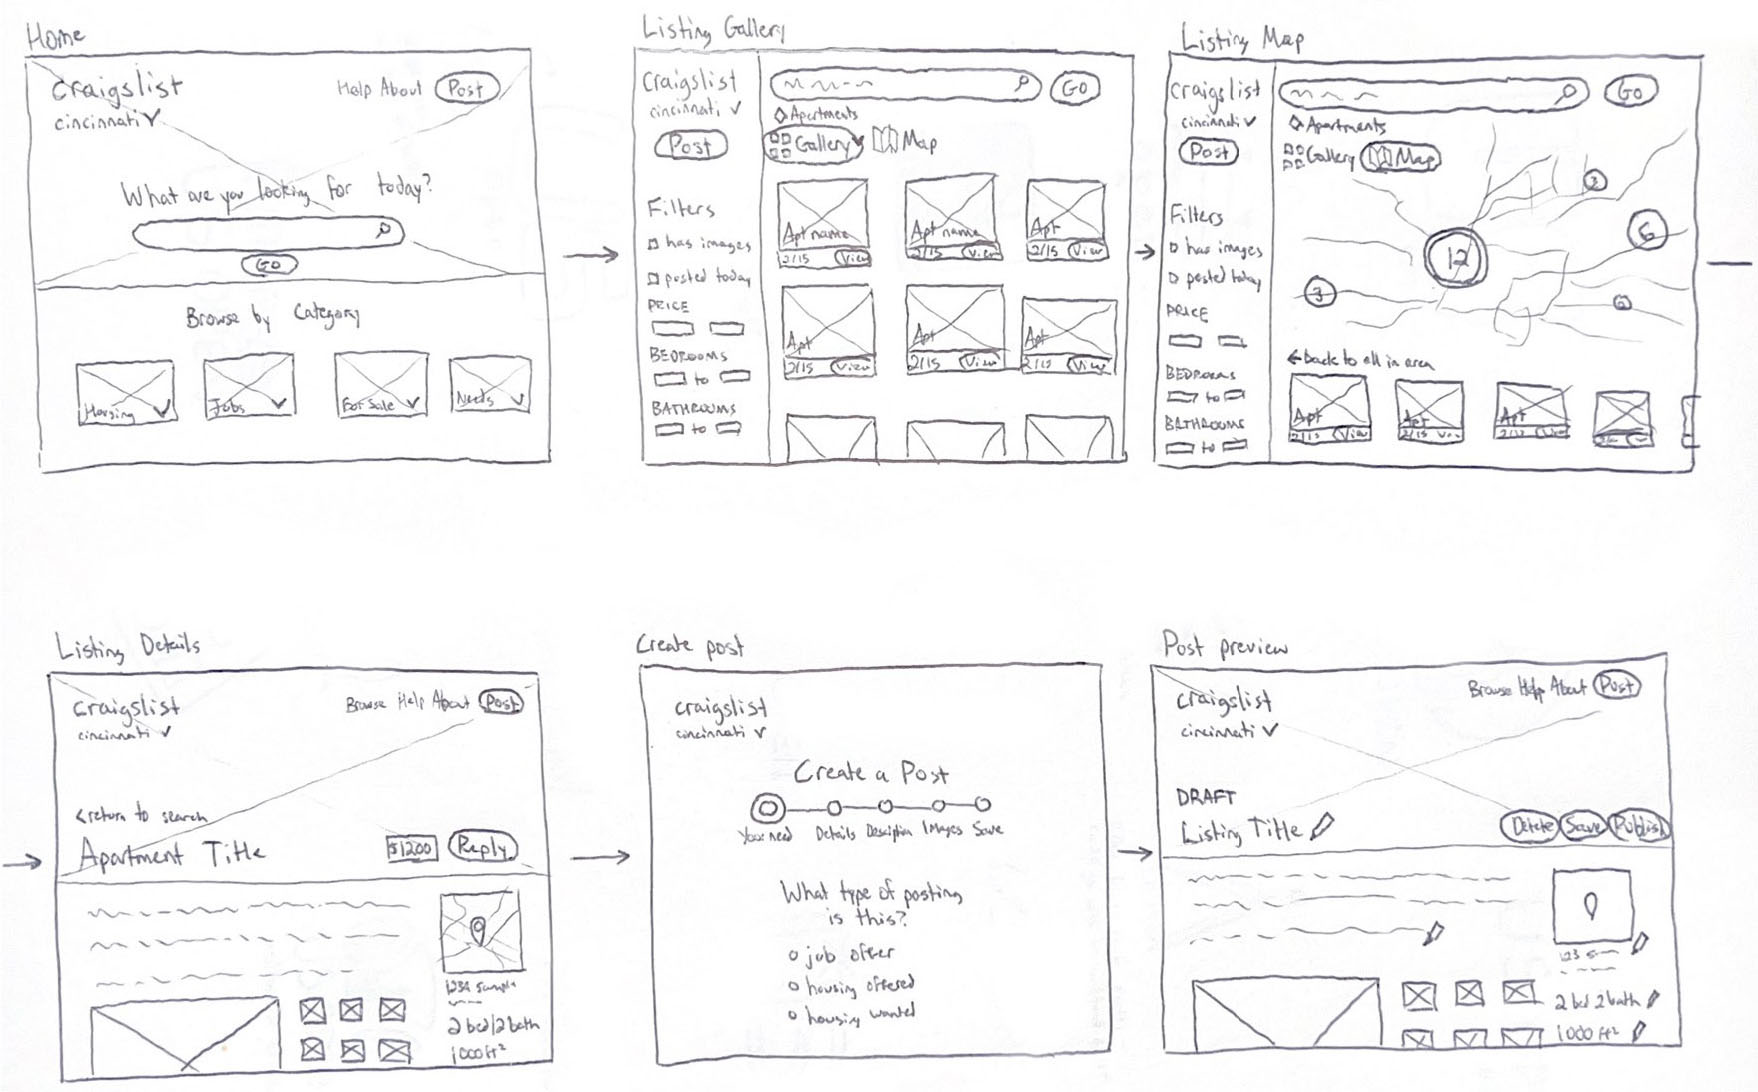 Home
craigslist
cincinnati
Help About Post
What are you looking for today?
GO
Browse by Category
Housing
Jobs
For Sale
Needs
Listing Gallery
craigslist
cincinnati
Post
Filters
has images
posted today
PRICE
BEDROOMS
to
BATHROOMS
to
GO
Apartments
Gallery Map
Apt name
2/15 View
Apt name
2/15 View
Apt
2/15 View
Apt
2/15 View
Apt
2/15 View
Apt
2/15 View
Listing Map
craigslist
cincinnati
Post
Filters
has images
posted today
PRICE
BEDROOMS
to
BATHROOMS
to
GO
Apartments
Gallery Map
12
6
3
back to all in area
Apt
2/15 View
Apt
2/15
Apt
2/15 View
Listing Details
craigslist
cincinnati
Browse Help About Post
<return to search
Apartment Title
$1200
Reply
1234 sample
2 bed/2 bath
1000 ft²
Create post
craigslist
cincinnati
Create a Post
need Details Description Images Save
What type of posting
is this?
job offer
housing offered
housing wanted
Post preview
craigslist
cincinnati
Browse Help About Post
DRAFT
Listing Title
Delete Save Publish
123
2 bed 2 bath
1000 ft²